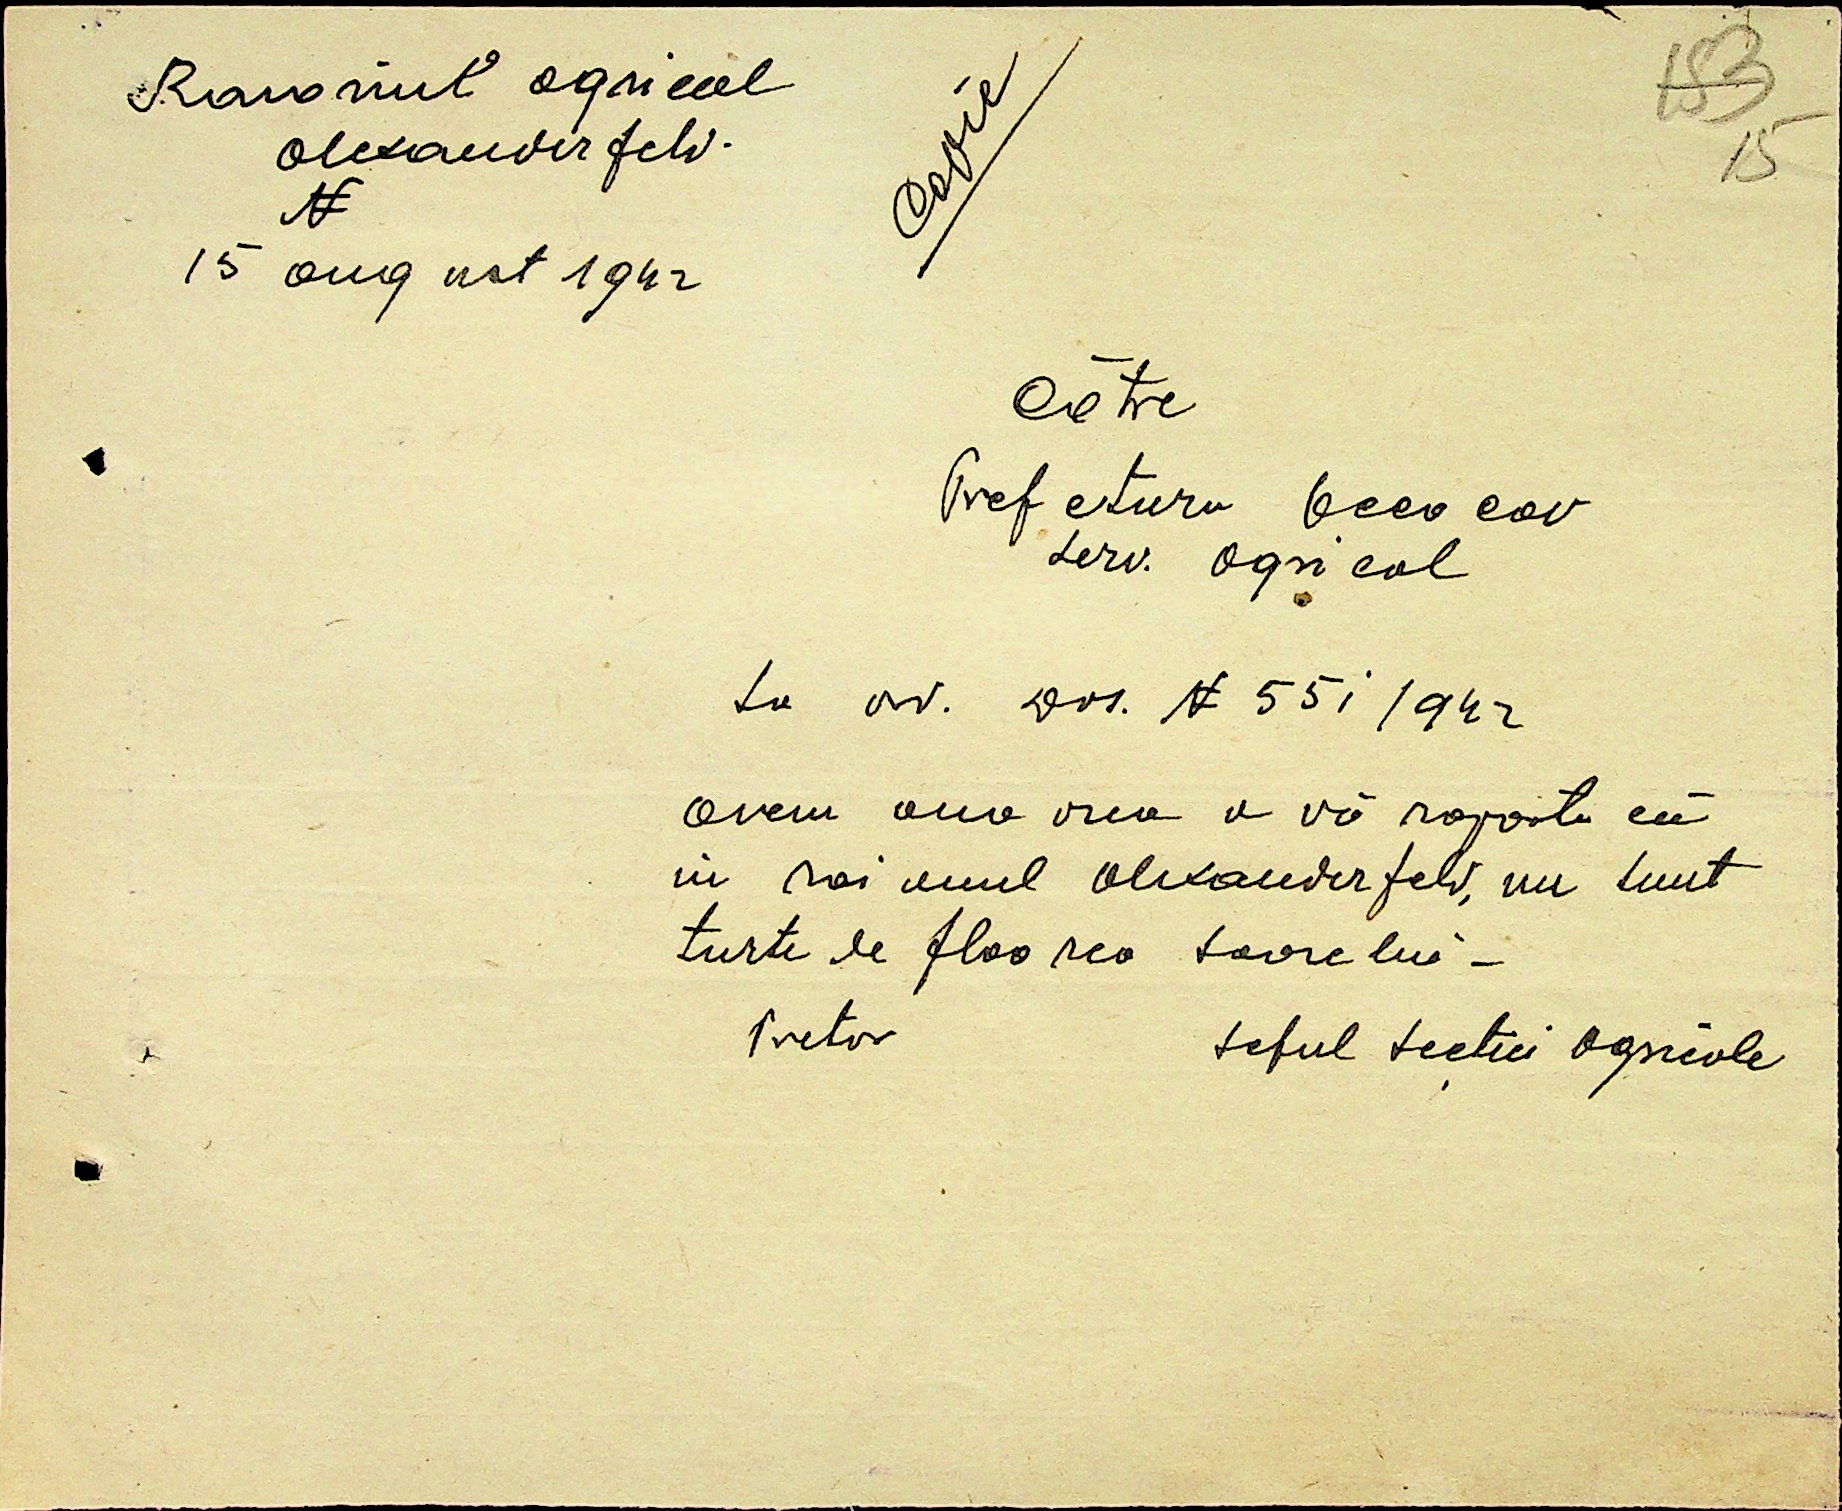 Raionul agricol
Alexanderfeld.
N
15 august 1942
Copie
153
15
Către
Prefectura Oceacov
Serv. Agricol
La ord. Dvs. N 551/942
Avem onoarea a vă raporta că
in raionul Alexanderfeld, nu sunt
turte de floarea soarelui -
Pretor
Seful Secției Agricole